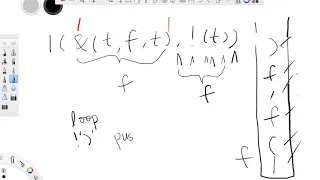 |(&(t,f,t),!(t))
f
f
loop
!')'
pus
)
f
,
f
(
f